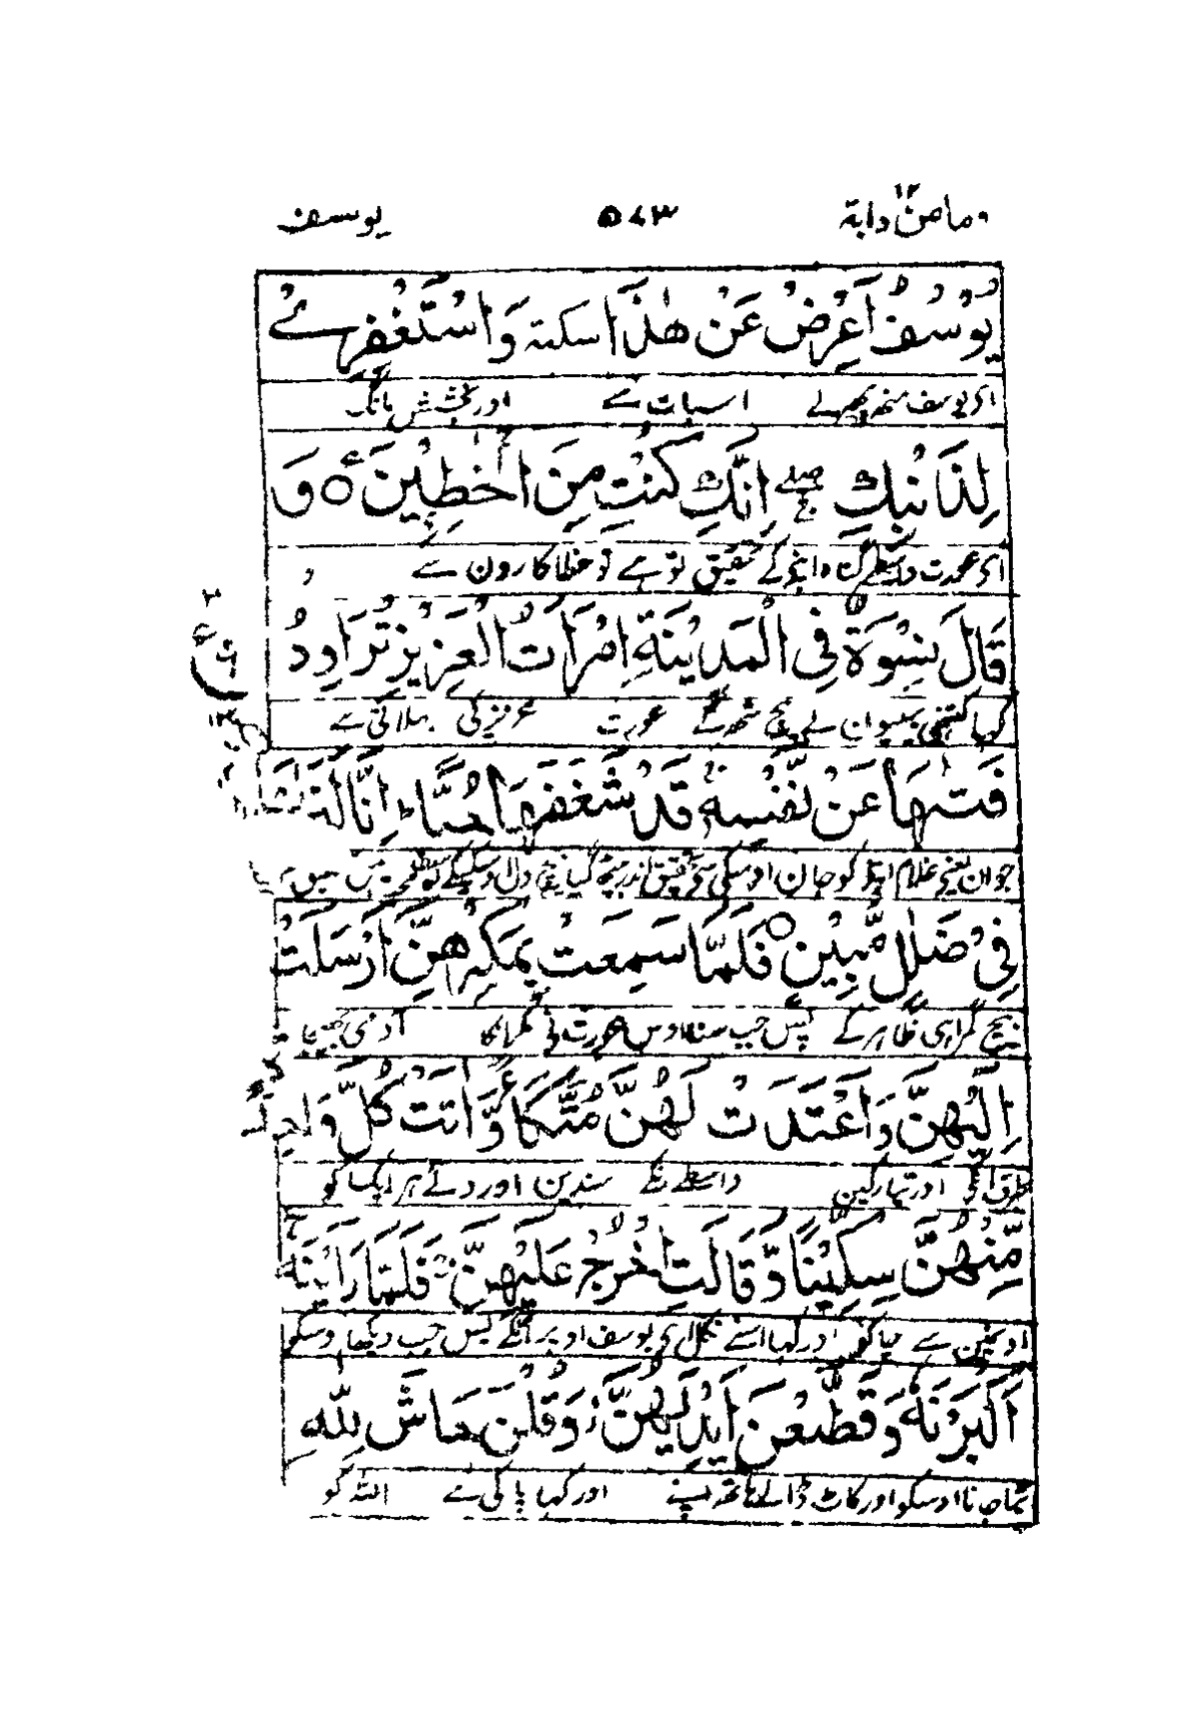 ومامن دابة ١٢ ٥٤٣ يوسف
يُوْسُفُ اَعْرِضْ عَنْ هٰذَا سكتة وَاسْتَغْفِرِيْ
اى يوسف منھ پھيرلے اسبات سے اور بخشش مانگ
لِذَنْۢبِكِ صلے ج اِنَّكِ كُنْتِ مِنَ الْخٰطِـِٕيْنَ ۟ وَ
اى عورت واسطے گناه اپنے کے تحقیق تو ہے تو خطا کارون سے
قَالَ نِسْوَةٌ فِي الْمَدِيْنَةِ امْرَاَتُ الْعَزِيْزِ تُرَاوِدُ
کہا کتنی بیبیوان نے بیچ شہر کے عورت عزیز کی بہلاتی ہے
فَتٰىهَا عَنْ نَّفْسِهٖ ۚ قَدْ شَغَفَهَا حُبًّا ؕ اِنَّا لَنَرٰىهَا
جوان یعنے غلام اپنے کو جان اوسکی سے تحقیق اندر بیٹھ گیا بیچ دل اوسکے کے
فِيْ ضَلٰلٍ مُّبِيْنٍ ۟ فَلَمَّا سَمِعَتْ بِمَكْرِهِنَّ اَرْسَلَتْ
بیچ گمراہی ظاہر کے پس جب سنا اوس عورت نے مکر انکا آدمی بھیجا
اِلَيْهِنَّ وَاَعْتَدَتْ لَهُنَّ مُتَّكَاً وَّاٰتَتْ كُلَّ وَاحِدَةٍ
طرف انکی اور تیار کین واسطے انکے مسندین اور دئے ہر ایک کو
مِّنْهُنَّ سِكِّيْنًا وَّقَالَتِ اخْرُجْ عَلَيْهِنَّ ۚ فَلَمَّا رَاَيْنَهٗٓ
اونمین سے چاکو اور کہا اسنے نکل اى یوسف اوپر انکے پس جب دیکھا اوسکو
اَكْبَرْنَهٗ وَقَطَّعْنَ اَيْدِيَهُنَّ ؗ وَقُلْنَ حَاشَ لِلّٰهِ
بڑا جانا اوسکو اور کاٹ ڈالے ہاتھ اپنے اور کہا پاکی ہے اللہ کو